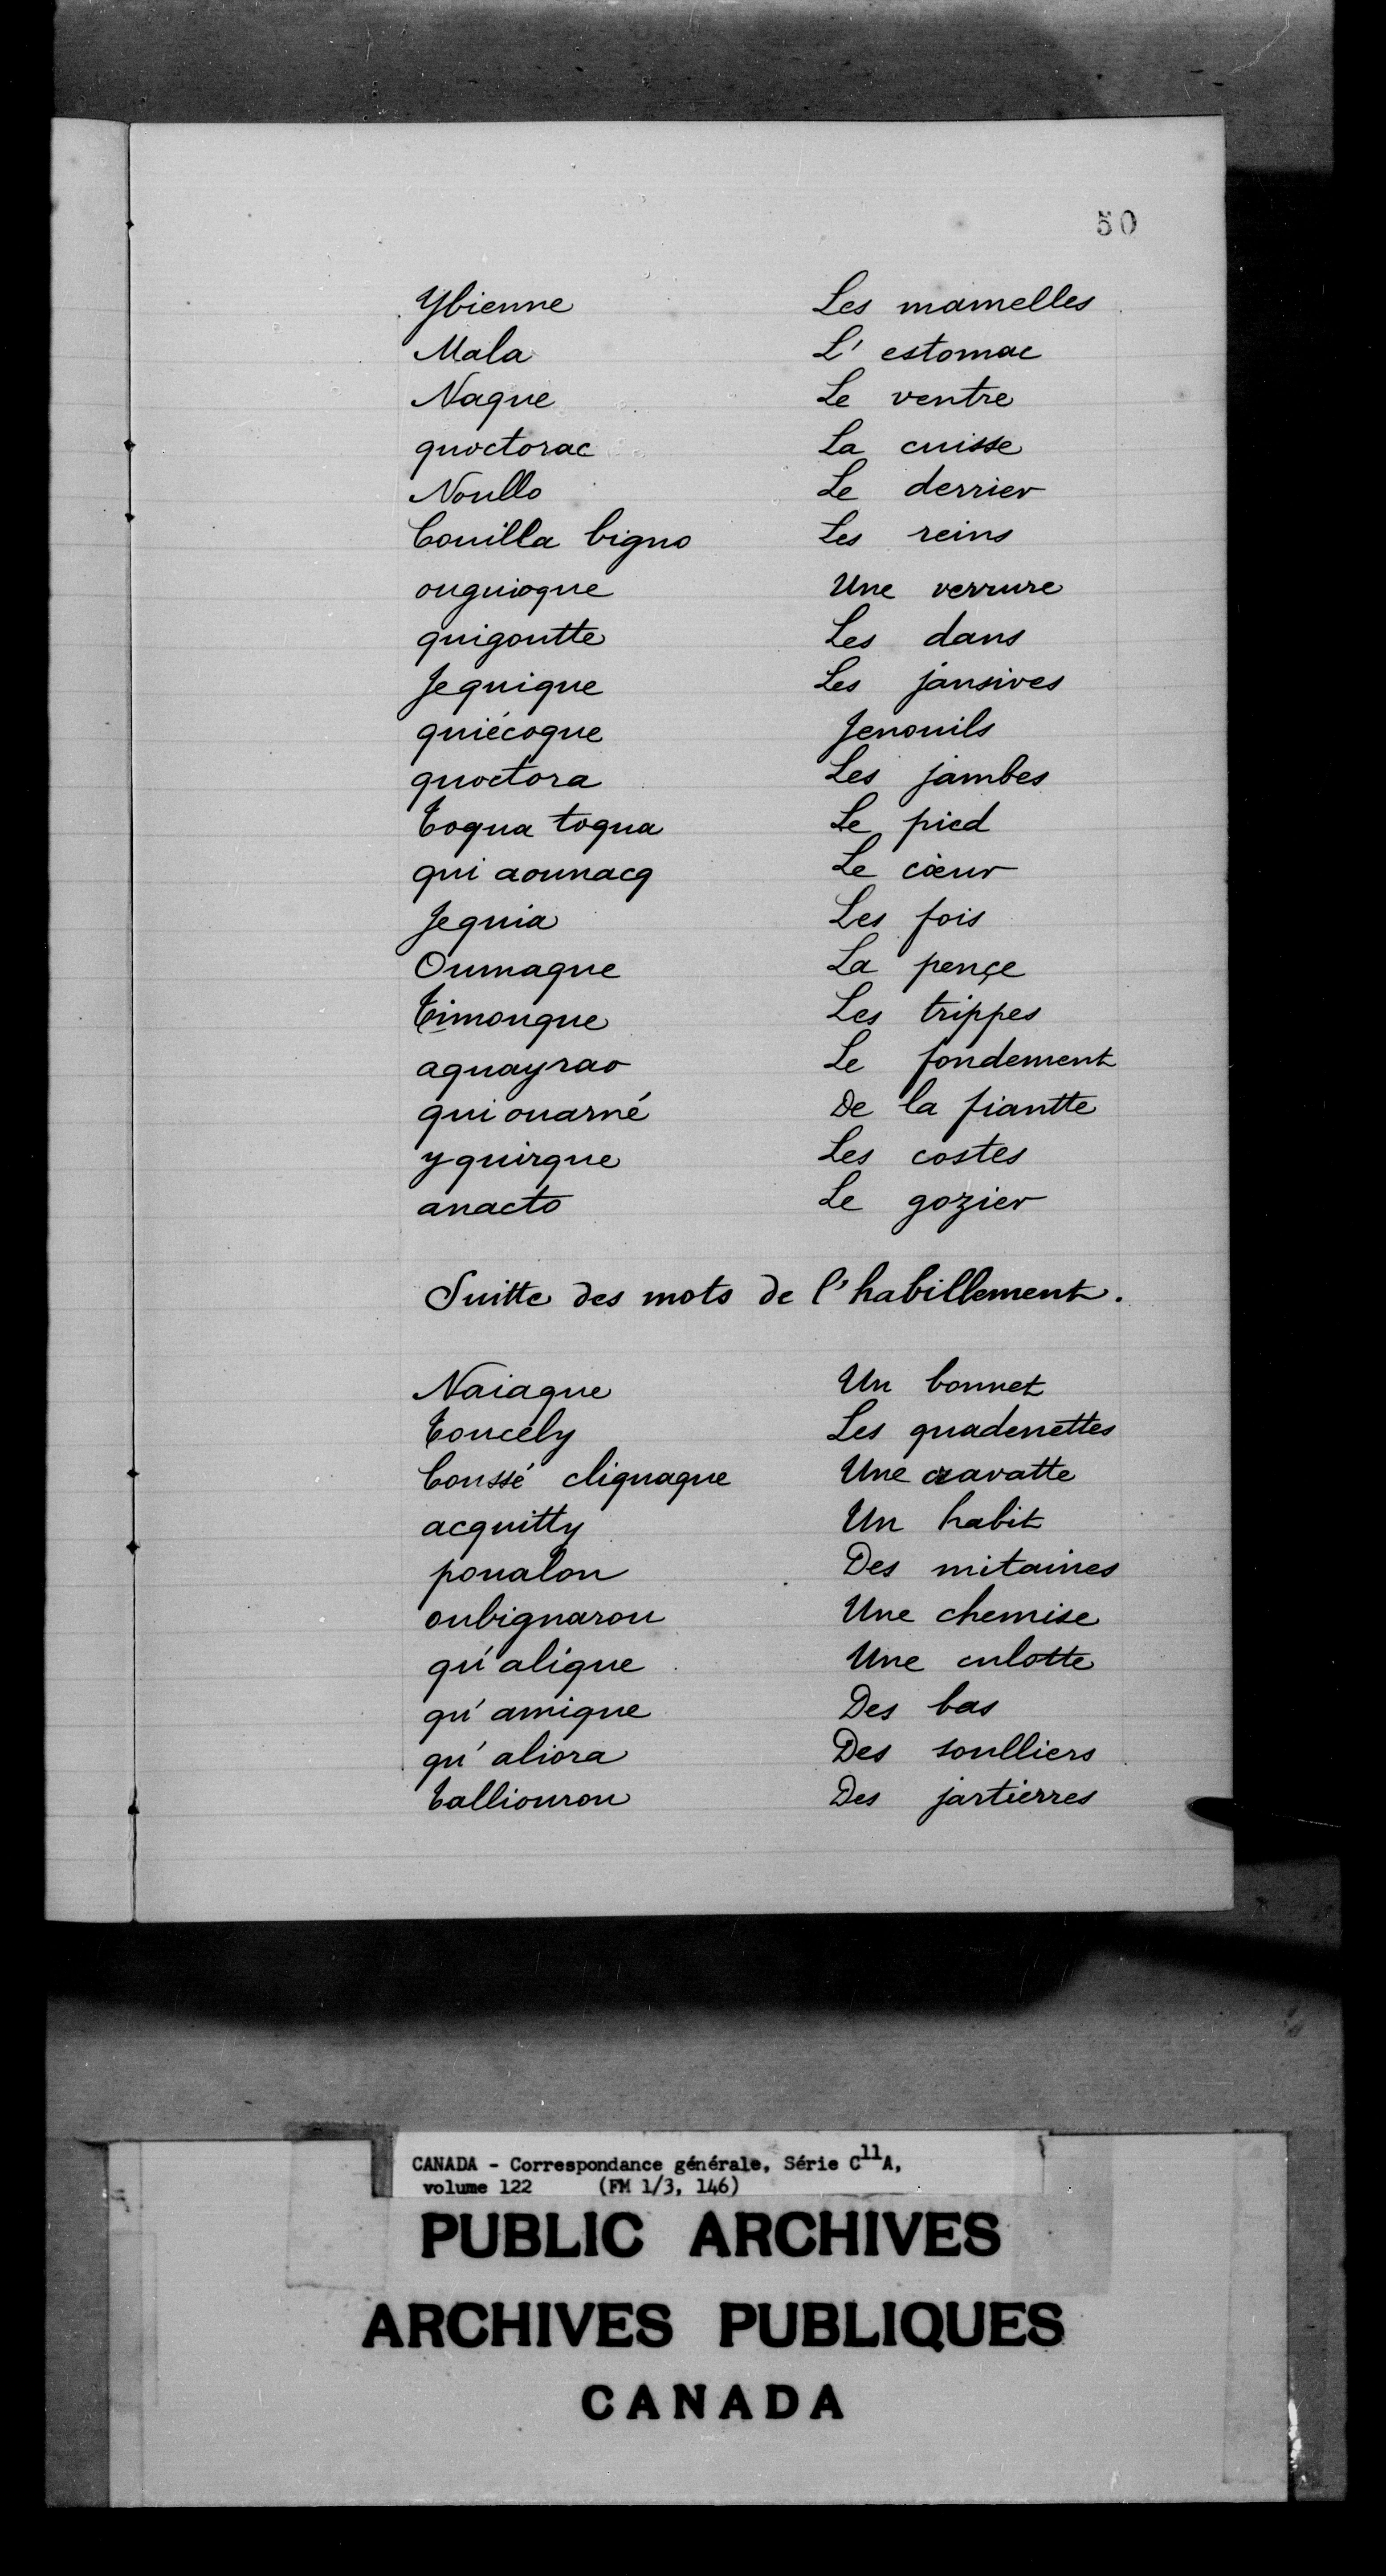 50
Ybienne Les mamelles
Mala L' estomac
Naque Le ventre
quoctorac La cuisse
Noullo Le derrier
Couilla bigno Les reins
ouguioque Une verrure
quigoutte Les dans
Jequique Les jansives
quiécoque Jenouils
quoctora Les jambes
Toqua toqua Le pied
qui aounacq Le cœur
Jequia Les fois
Oumaque La pençe
Timouque Les trippes
aquayrao Le fondement
qui ouarné De la fiantte
y quirque Les costes
anacto Le gozier
Suitte des mots de l'habillement.
Naiaque Un bonnet
Toucely Les quadenettes
Coussé clignaque Une cravatte
acquitty Un habit
poualon Des mitaines
oubignarou Une chemise
qu'aligue Une culotte
qu'amigue Des bas
qu'aliora Des soulliers
Talliouron Des jartierres
CANADA - Correspondance générale, Série C11A,
volume 122 (FM 1/3, 146)
PUBLIC ARCHIVES
ARCHIVES PUBLIQUES
CANADA